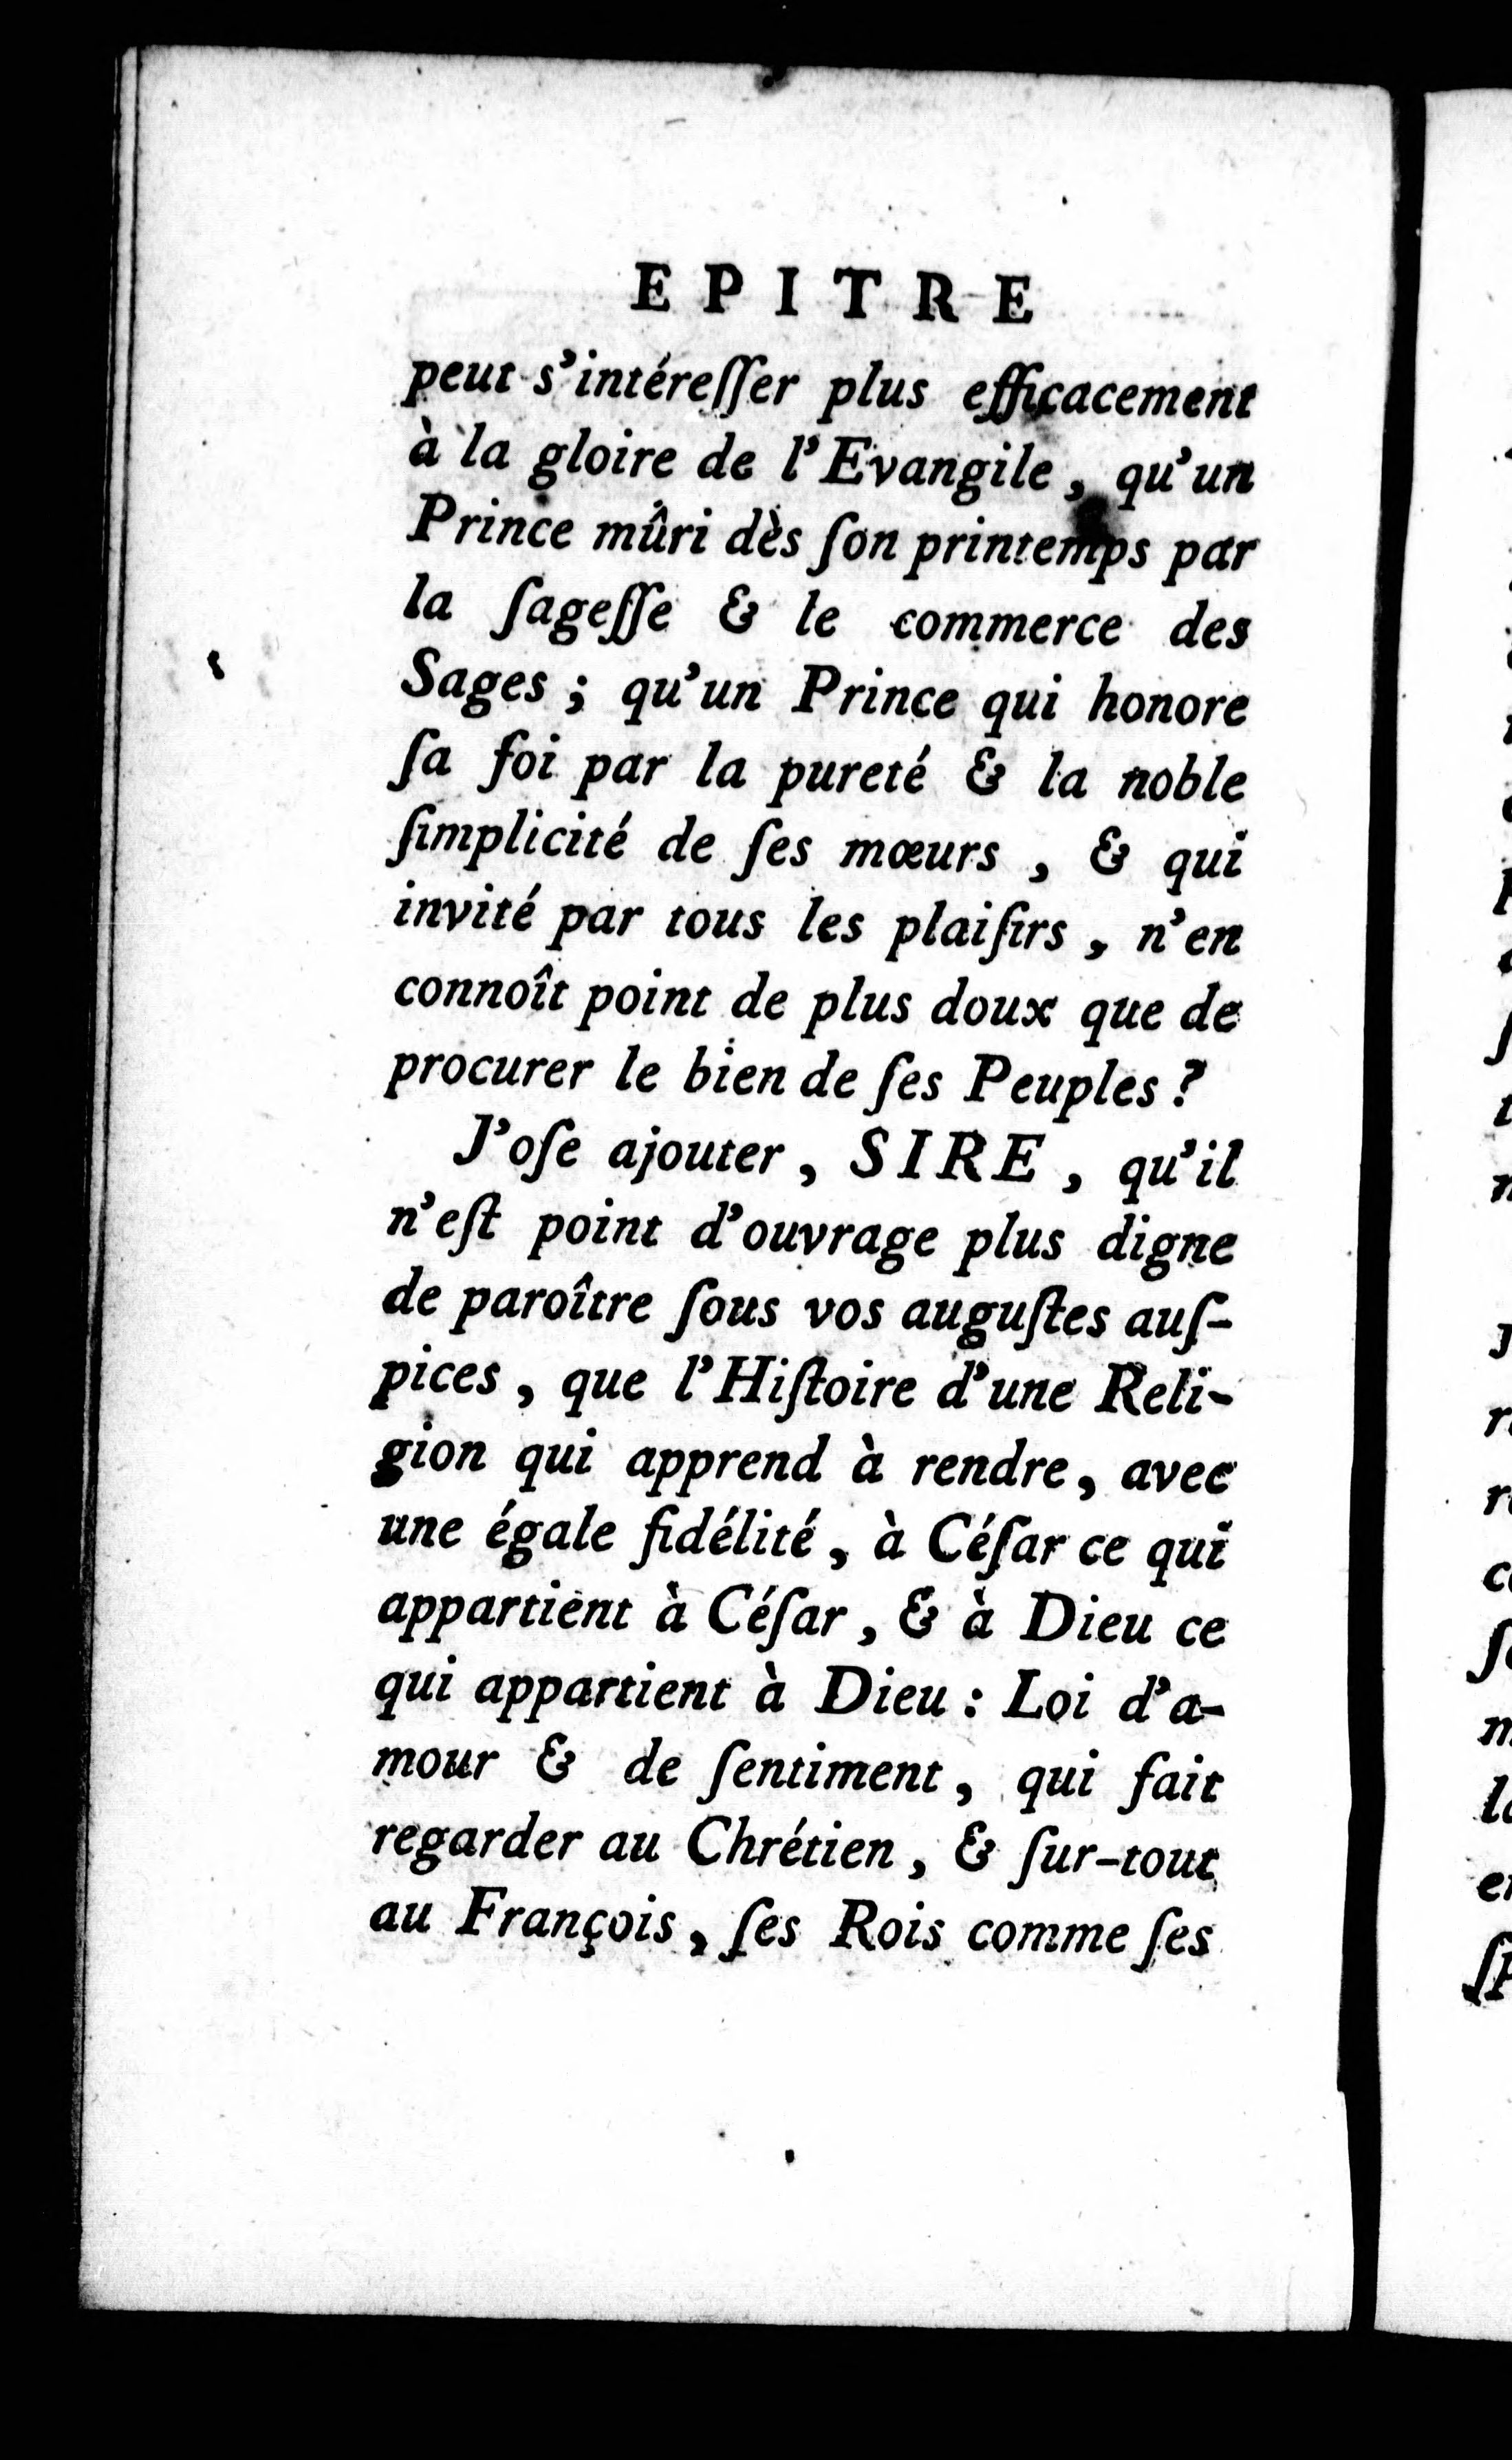 EPITRE
peut s'intéreſſer plus efficacement
à la gloire de l'Evangile, qu'un
Prince mûri dès ſon printemps par
la ſageſſe & le commerce des
Sages; qu'un Prince qui honore
ſa foi par la pureté & la noble
ſimplicité de ſes mœurs, & qui
invité par tous les plaiſirs, n'en
connoît point de plus doux que de
procurer le bien de ſes Peuples?
J'oſe ajouter, SIRE, qu'il
n'eſt point d'ouvrage plus digne
de paroître ſous vos auguſtes auſ-
pices, que l'Hiſtoire d'une Reli-
gion qui apprend à rendre, avec
une égale fidélité, à Céſar ce qui
appartient à Céſar, & à Dieu ce
qui appartient à Dieu: Loi d'a-
mour & de ſentiment, qui fait
regarder au Chrétien, & ſur-tout
au François, ſes Rois comme ſes